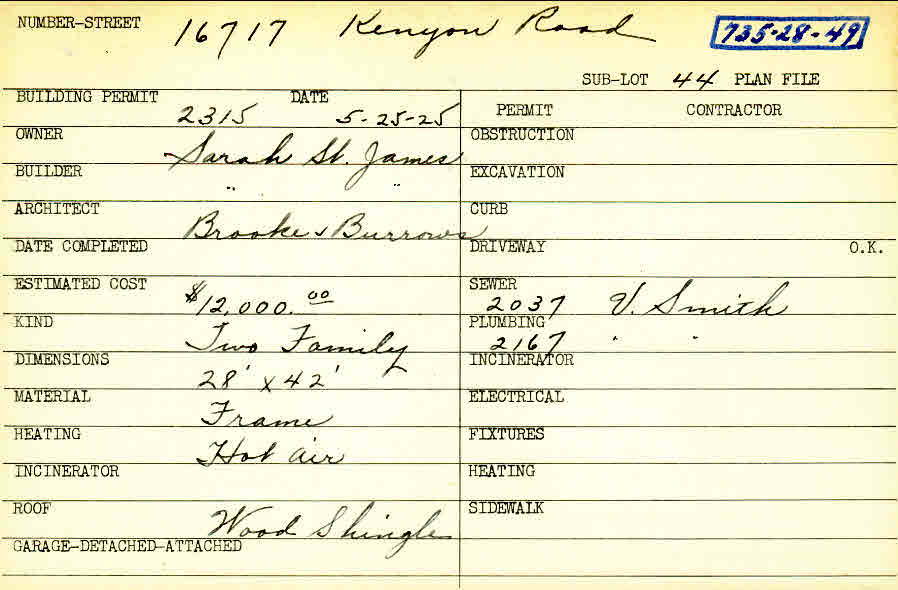 NUMBER-STREET 16717 Kenyon Road 735-28-49
SUB-LOT 44 PLAN FILE
BUILDING PERMIT 2315 DATE 5-25-25
PERMIT CONTRACTOR
OWNER Sarah St. James
OBSTRUCTION
BUILDER " "
EXCAVATION
ARCHITECT Brooke & Burrows
CURB
DATE COMPLETED
DRIVEWAY O.K.
ESTIMATED COST $12,000.00
SEWER 2037 V. Smith
KIND Two Family
PLUMBING 2167 " "
DIMENSIONS 28' x 42'
INCINERATOR
MATERIAL Frame
ELECTRICAL
HEATING Hot air
FIXTURES
INCINERATOR
HEATING
ROOF Wood Shingle
SIDEWALK
GARAGE-DETACHED-ATTACHED